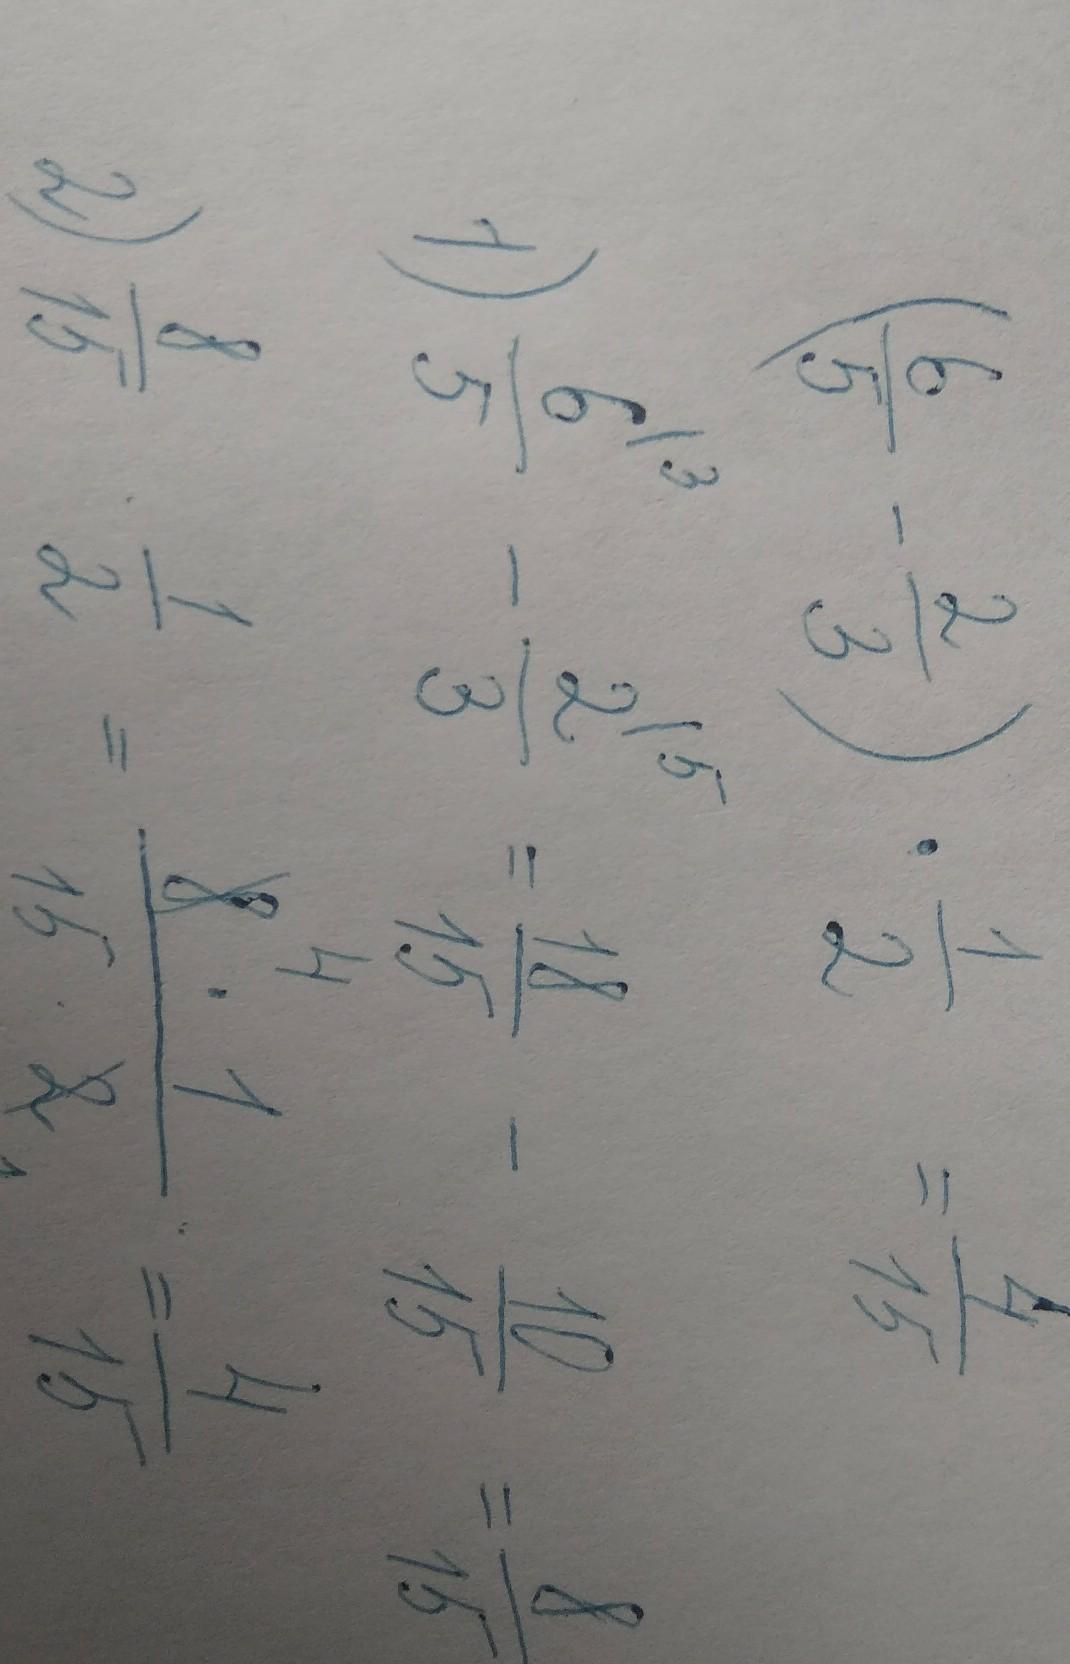 (6/5 - 2/3) · 1/2 = 4/15
1) 6/5 \3 - 2/3 \5 = 18/15 - 10/15 = 8/15
2) 8/15 · 1/2 = 8 4 · 1 / 15 · 2 1 = 4/15